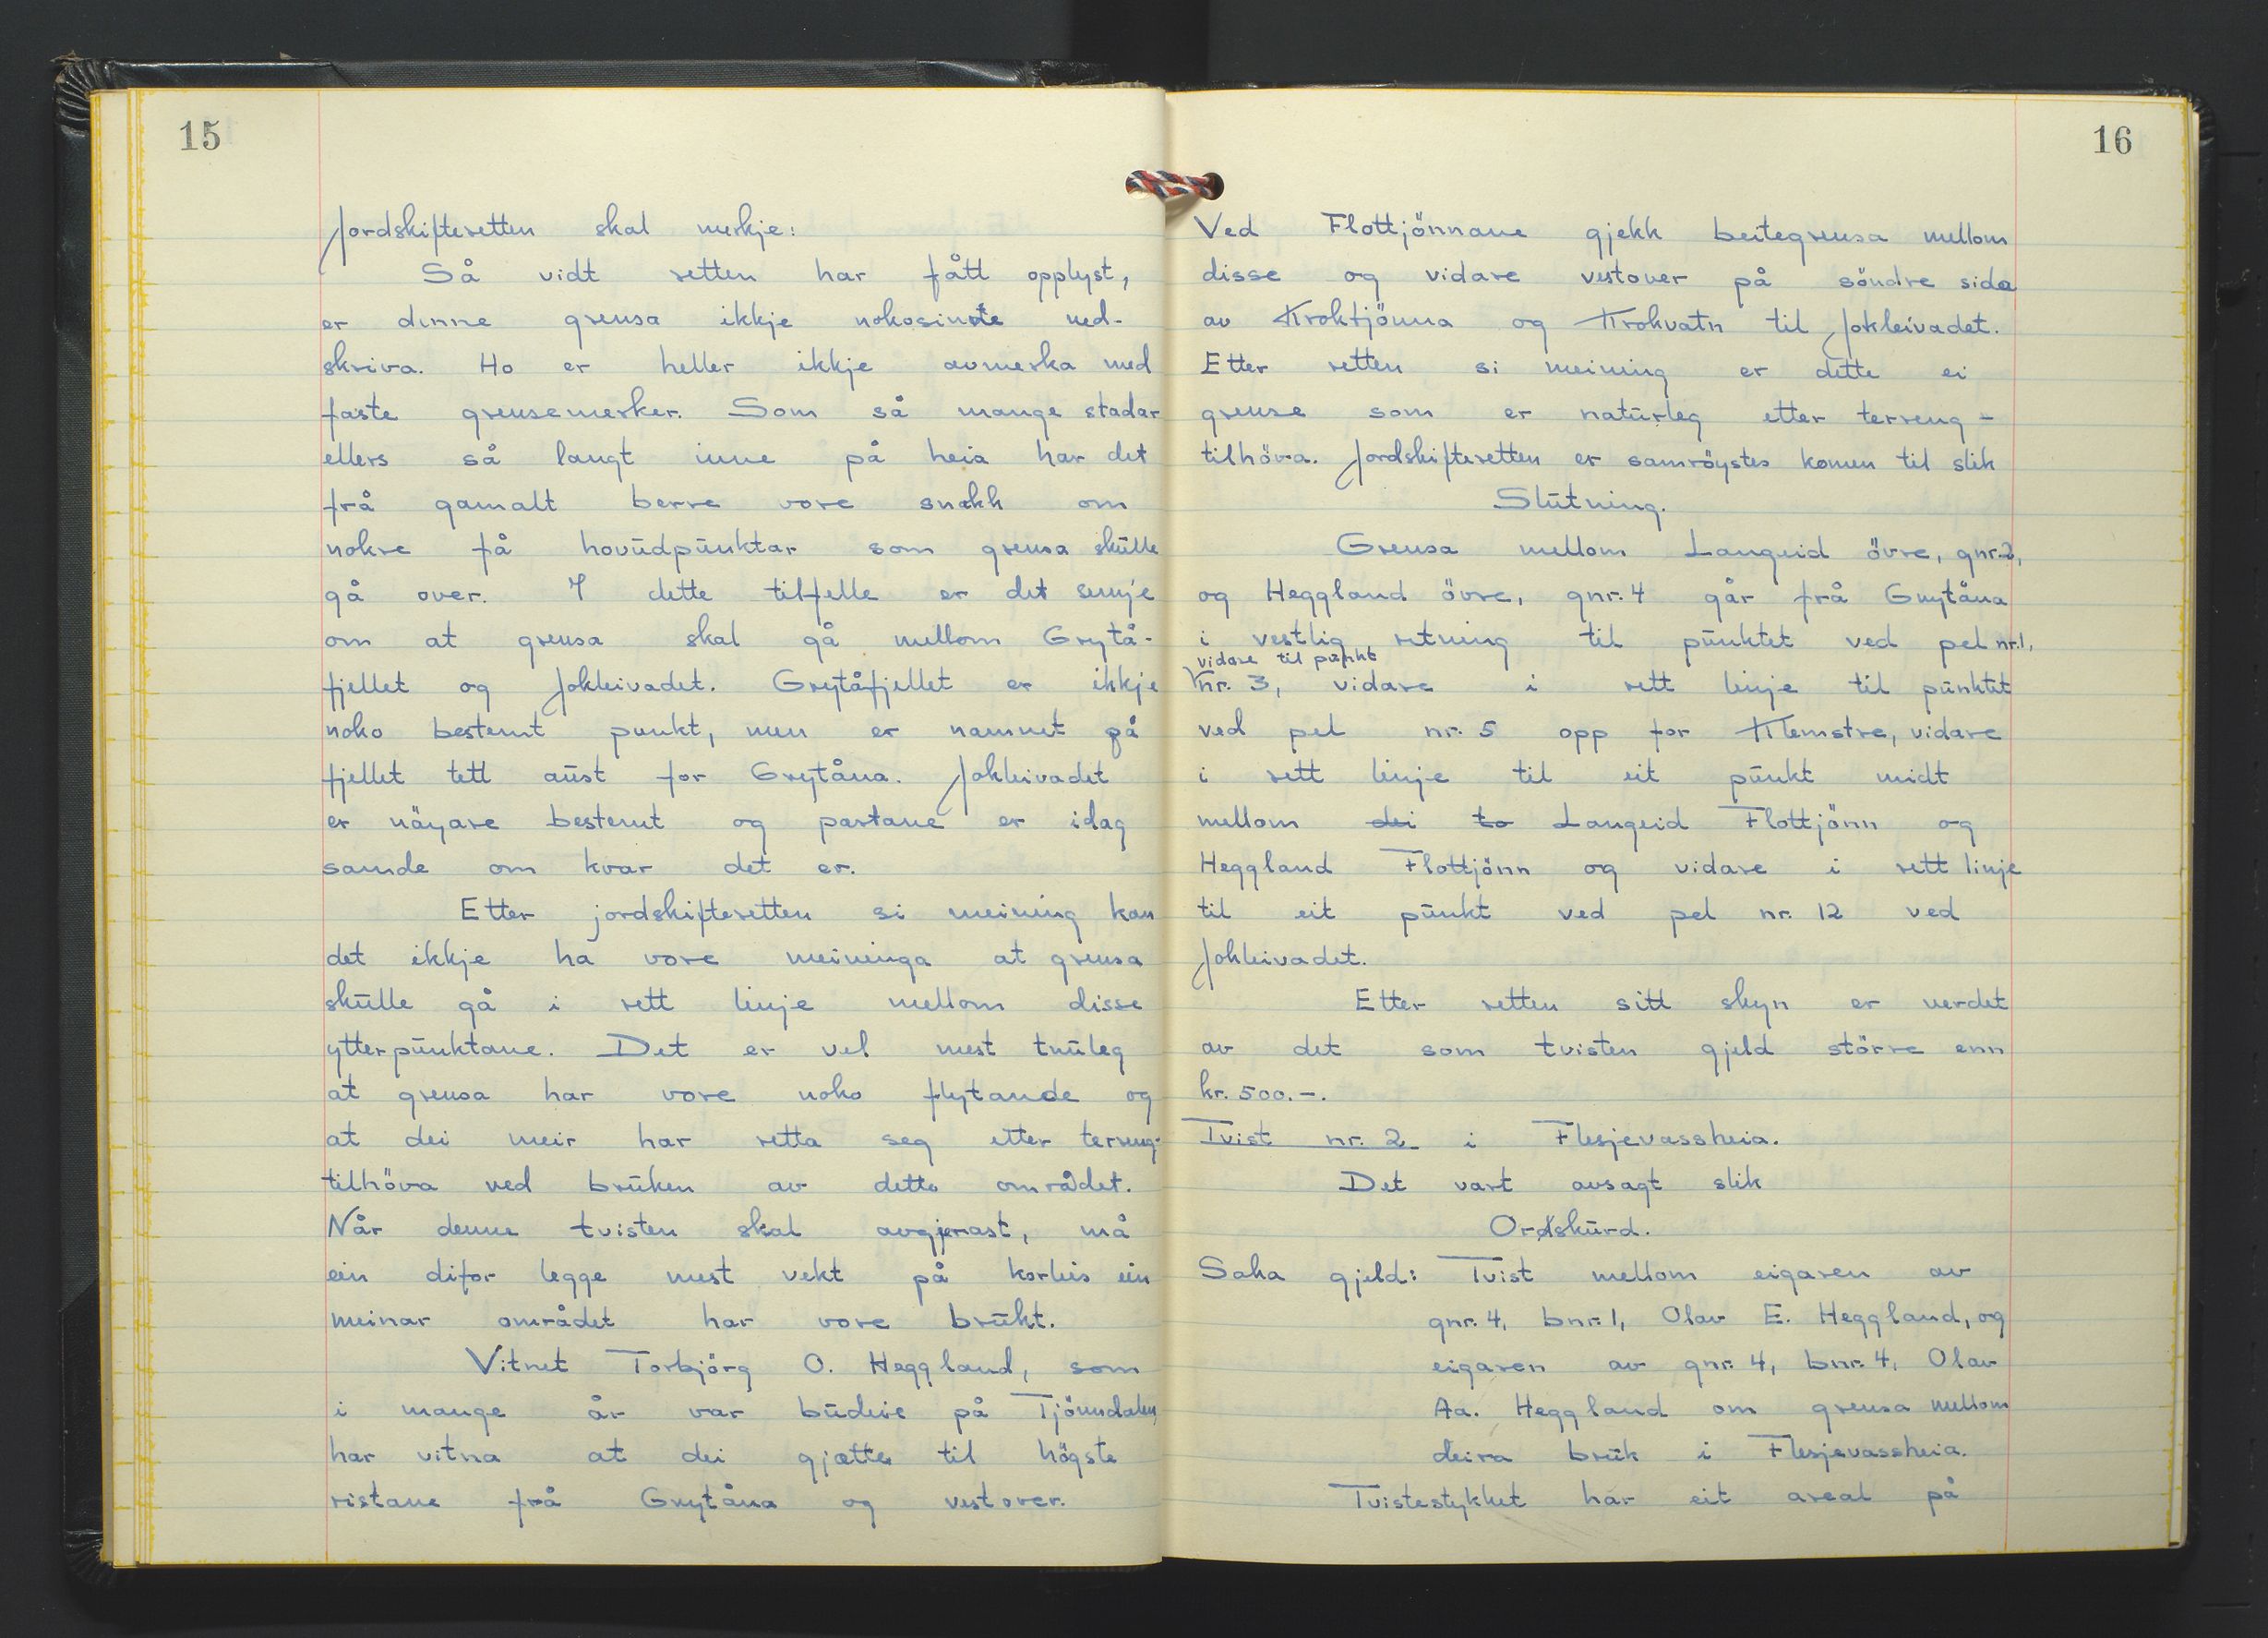 15
Jordskifteretten skal merkje:
Så vidt retten har fått opplyst,
er denne grensa ikkje nokosinde ned-
skriva. Ho er heller ikkje avmerka med
faste grensemerker. Som så mange stadar
ellers så langt inne på heia har det
frå gamalt berre vore snakk om
nokre få hovudpunktar som grensa skulle
gå over. I dette tilfelle er det semje
om at grensa skal gå mellom Grytå-
fjellet og Jokleivadet. Grytåfjellet er ikkje
noko bestemt punkt, men er namnet på
fjellet tett aust for Grytåna. Jokleivadet
er nöyare bestemt og partane er idag
samde om kvar det er.
Etter jordskifteretten si meining kan
det ikkje ha vore meininga at grensa
skulle gå i rett linje mellom disse
ytterpunktane. Det er vel mest truleg
at grensa har vore noko flytande og
at dei meir har retta seg etter terreng-
tilhöva ved bruken av detta området.
Når denne tvisten skal avgjerast, må
ein difor legge mest vekt på korleis ein
meinar området har vore brukt.
Vitnet Torbjörg O. Heggland, som
i mange år var budeie på Tjönndalen,
har vitna at dei gjætte til högste
ristane frå Grytåna og vestover.
16
Ved Flottjönnane gjekk beitegrensa mellom
disse og vidare vestover på söndre sida
av Kroktjönna og Krokvatn til Jokleivadet.
Etter retten si meining er dette ei
grense som er naturleg etter terreng-
tilhöva. Jordskifteretten er samröystes komen til slik
Slutning.
Grensa mellom Langeid övre, gnr. 2,
og Heggland övre, gnr. 4 går frå Grytåna
i vestlig retning til punktet ved pel nr. 1,
vidare til punkt
nr. 3, vidare i rett linje til punktet
ved pel nr. 5 opp for Klemstre, vidare
i rett linje til eit punkt midt
mellom dei to Langeid Flottjönn og
Heggland Flottjönn og vidare i rett linje
til eit punkt ved pel nr. 12 ved
Jokleivadet.
Etter retten sitt skyn er verdet
av det som tvisten gjeld större enn
kr. 500.-.
Tvist nr. 2 i Flesjevassheia.
Det vart avsagt slik
Ordskurd.
Saka gjeld: Tvist mellom eigaren av
gnr. 4, bnr. 1, Olav E. Heggland, og
eigaren av gnr. 4, bnr. 4, Olav
Aa. Heggland om grensa mellom
deira bruk i Flesjevassheia.
Tvistestykket har eit areal på